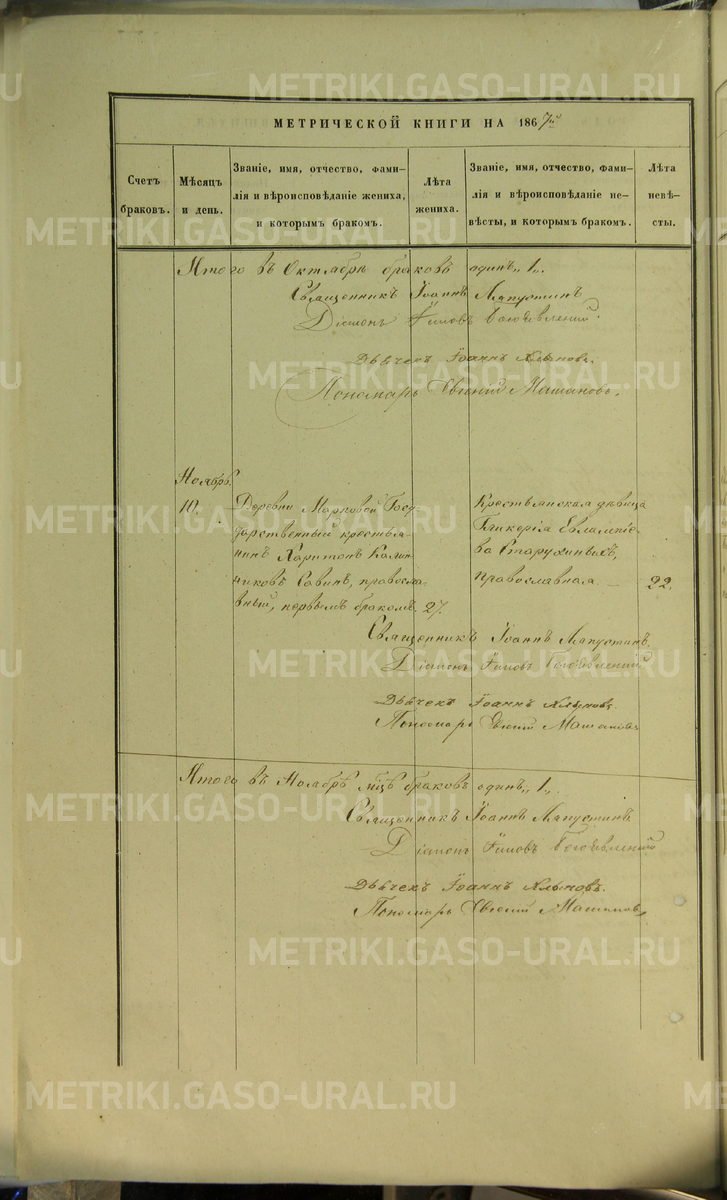 МЕТРИЧЕСКОЙ КНИГИ НА 1867й
Счетъ
браковъ.
Мѣсяцъ
и день.
Званіе, имя, отчество, фами-
лія и вѣроисповѣданіе жениха,
и которымъ бракомъ.
Лѣта
жениха.
Званіе, имя, отчество, фами-
лія и вѣроисповѣданіе не-
вѣсты, и которымъ бракомъ.
Лѣта
невѣ-
сты.
Итого въ Октябрѣ браковъ одинъ „1„.
Священникъ Іоаннъ Лапустинъ
Діаконъ Іаковъ Богоявленскій
Дьячекъ Іоаннъ
Пономарь Евгеній Машановъ.
Ноябрь.
10.
Деревни Марковой Госу-
дарственный крестья-
нинъ Харитонъ Калин-
никовъ Савинъ, правосла-
вный, первымъ бракомъ. 27.
Крестьянская дѣвица
Гликерія Евлампіе-
ва Старухиныхъ,
православная. 22.
Священникъ Іоаннъ Лапустинъ.
Діаконъ Іаковъ Богоявленскій
Дьячекъ Іоаннъ
Пономарь Евгеній Машановъ
Итого въ Ноябрѣ мцѣ браковъ одинъ „1„.
Священникъ Іоаннъ Лапустинъ
Діаконъ Іаковъ Богоявленскій
Дьячекъ Іоаннъ
Пономарь Евгеній Машановъ
METRIKI.GASO-URAL.RU